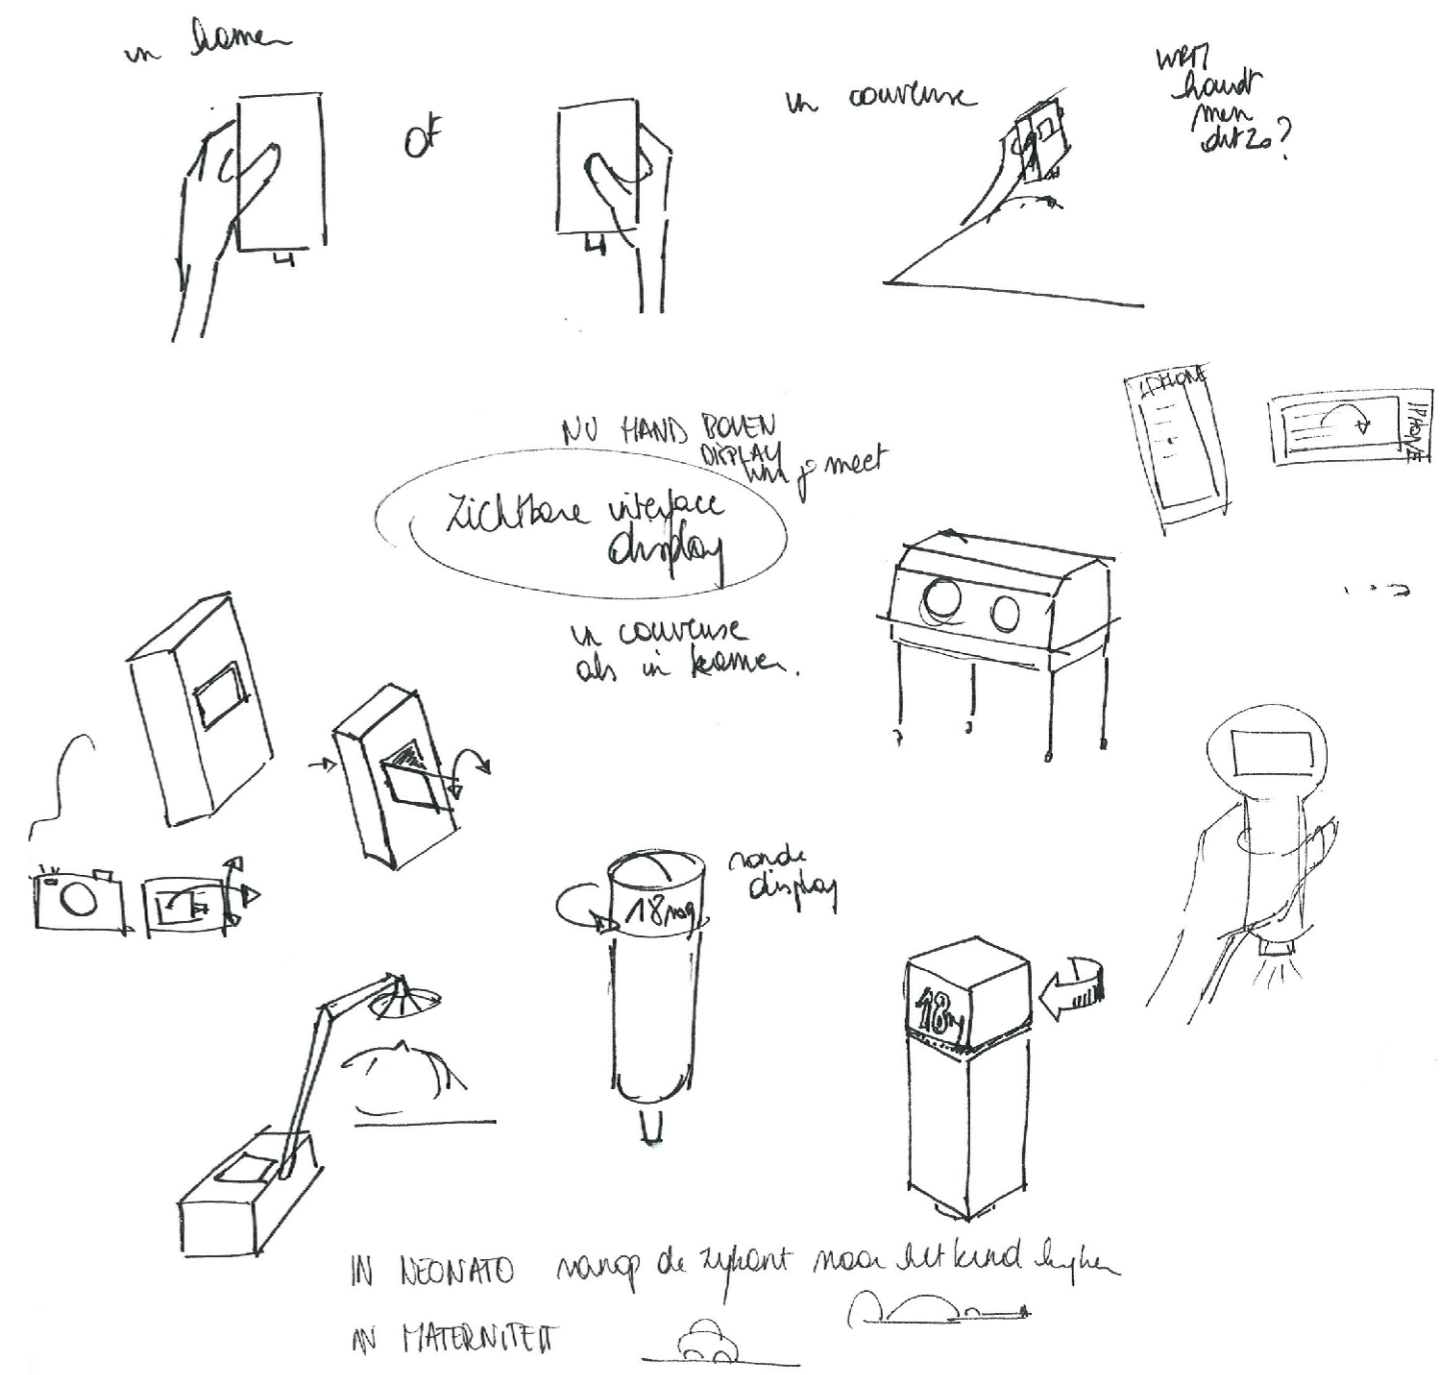 in kamer
of
in couveuse
wer
houdt
men
dit zo?
IPHONE
IPHONE
NU HAND BOVEN
DISPLAY
als je meet
Zichtbare interface
display
in couveuse
als in kamer.
ronde
display
18 mg
18 m
IN NEONATO vanop de zijkant naar het kind kijken
IN MATERNITEIT